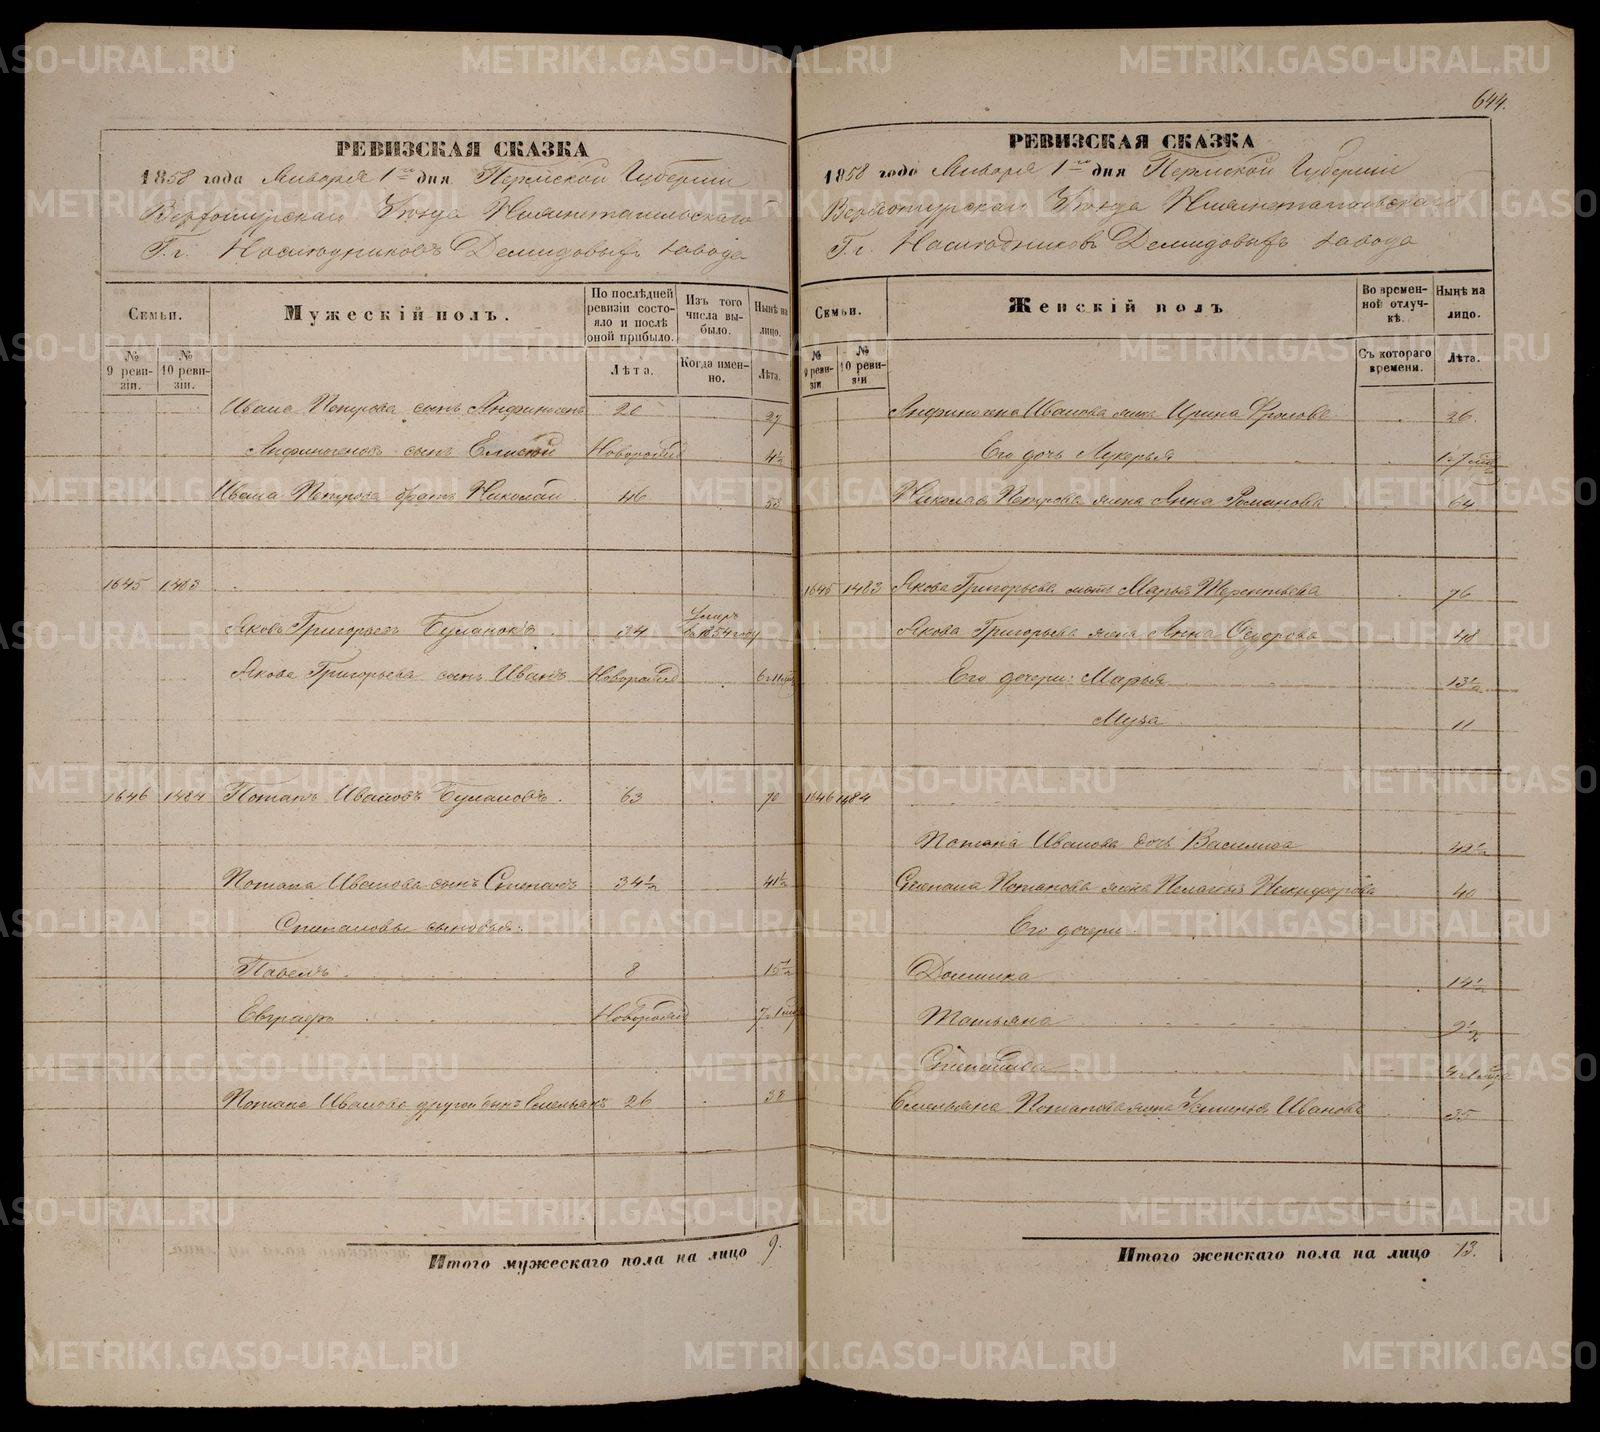 644.
РЕВИЗСКАЯ СКАЗКА
1858 года Января 1го дня Пермской Губерніи
Верхотурскаго Уѣзда Нижнетагильскаго
Г.г. Наслѣдниковъ Демидовыхъ завода
Семьи.
Мужескій полъ.
По послѣдней ревизіи состояло и послѣ оной прибыло.
Изъ того числа выбыло.
Нынѣ на лицо.
№ 9 ревизіи.
№ 10 ревизіи.
Лѣта.
Когда именно.
Лѣта.
Ивана Петрова сынъ Анфиногенъ 20 27
Анфиногеновъ сынъ Новорожд 4½
Ивана Петрова братъ Николай 46 53
1645 1483
Яковъ Григорьевъ 34 Умеръ въ 1854 году
Якова Григорьева сынъ Иванъ Новорожд
1646 1484 Потапъ Ивановъ Булановъ 63 70
Потапа Иванова сынъ Степанъ 34½ 41½
Степановы сыновья:
Павелъ 8 15½
Евграфъ Новорожд
Потапа Иванова другой сынъ Емельянъ 26
Итого мужескаго пола на лицо 9.
РЕВИЗСКАЯ СКАЗКА
1858 года Января 1го дня Пермской Губерніи
Верхотурскаго Уѣзда Нижнетагильскаго
Г.г. Наслѣдниковъ Демидовыхъ завода
Семьи.
Женскій полъ
Во временной отлучкѣ.
Нынѣ на лицо.
№ 9 ревизіи
№ 10 ревизіи
Съ котораго времени.
Лѣта.
Анфиногена Иванова жена Ирина Фролова 26.
Его дочь Лукерья
Николая Петрова жена Анна Романова 64
1645 1483 Якова Григорьева мать Марья Терентьева 76
Якова Григорьева жена Анна Федорова 48
Его дочери: Марья 13½
Муза 11
1646 1484
Потапа Иванова дочь Василиса 42½
Степана Потапова жена Пелагея Никифорова 40
Его дочери:
Домника 14½
Татьяна 9½
Степанида
Емельяна Потапова жена Устинья Иванова 35
Итого женскаго пола на лицо 13.
METRIKI.GASO-URAL.RU